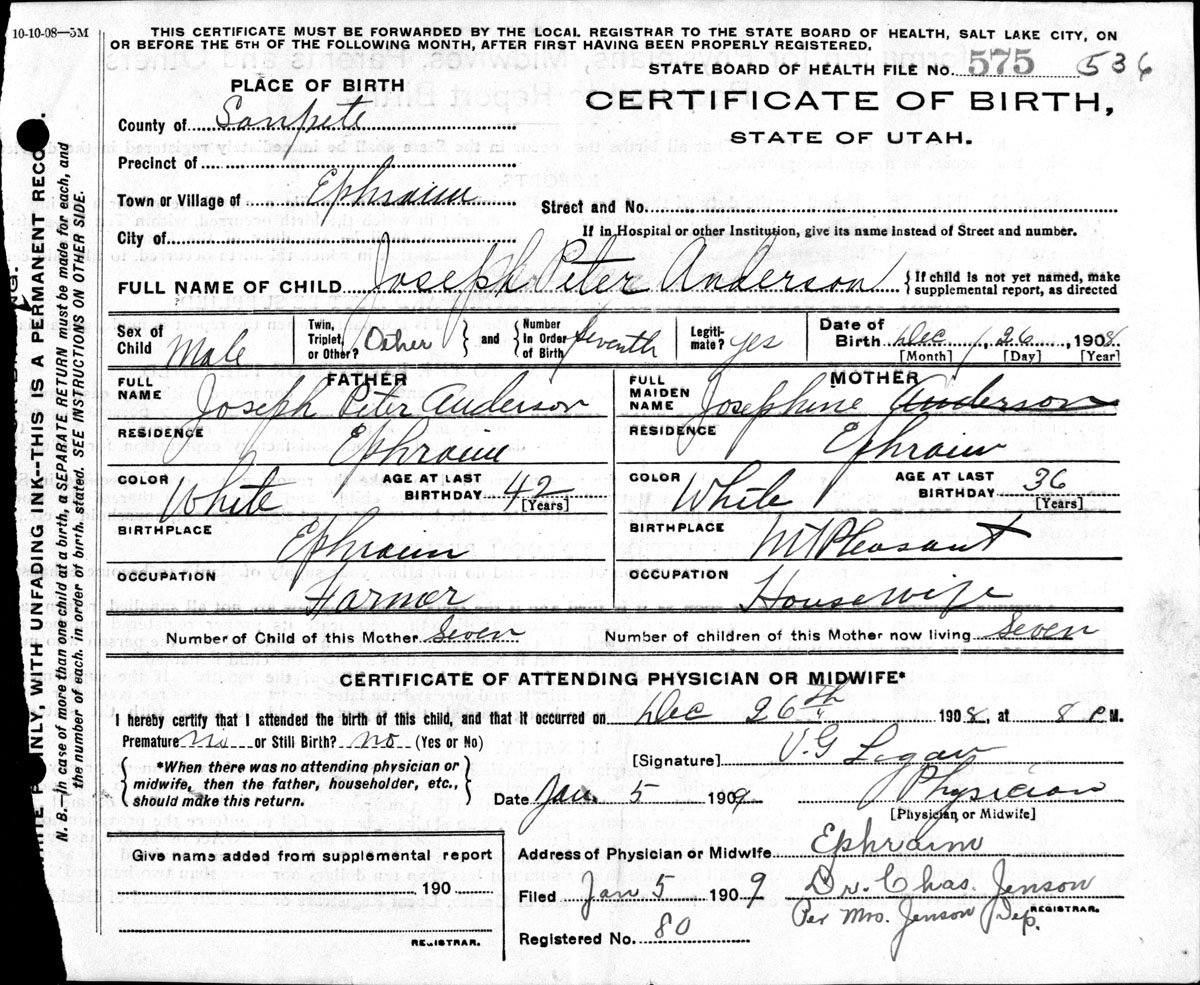 10-10-08—5M
THIS CERTIFICATE MUST BE FORWARDED BY THE LOCAL REGISTRAR TO THE STATE BOARD OF HEALTH, SALT LAKE CITY, ON
OR BEFORE THE 5TH OF THE FOLLOWING MONTH, AFTER FIRST HAVING BEEN PROPERLY REGISTERED.
STATE BOARD OF HEALTH FILE No. 575 536
PLACE OF BIRTH
CERTIFICATE OF BIRTH,
STATE OF UTAH.
County of Sanpete
Precinct of
Town or Village of Ephraim
Street and No.
City of
If in Hospital or other Institution, give its name instead of Street and number.
FULL NAME OF CHILD Joseph Peter Anderson { If child is not yet named, make
supplemental report, as directed
Sex of Child Male Twin, Triplet, or Other? Other } and { Number In Order of Birth Seventh Legiti-mate? yes Date of Birth Dec, 26, 1908.
[Month] [Day] [Year]
FATHER
FULL NAME Joseph Peter Anderson
RESIDENCE Ephraim
COLOR White AGE AT LAST BIRTHDAY 42 [Years]
BIRTHPLACE Ephraim
OCCUPATION Farmer
MOTHER
FULL MAIDEN NAME Josephine Anderson
RESIDENCE Ephraim
COLOR White AGE AT LAST BIRTHDAY 36 [Years]
BIRTHPLACE Mt Pleasant
OCCUPATION Housewife
Number of Child of this Mother Seven Number of children of this Mother now living Seven
CERTIFICATE OF ATTENDING PHYSICIAN OR MIDWIFE*
I hereby certify that I attended the birth of this child, and that it occurred on Dec 26th 1908, at 8 P M.
Premature no or Still Birth? no (Yes or No)
[Signature] U.G Logan
{ *When there was no attending physician or
midwife, then the father, householder, etc.,
should make this return. }
Date Jan. 5 1909 Physician
[Physician or Midwife]
Give name added from supplemental report
190
REGISTRAR.
Address of Physician or Midwife Ephraim
Filed Jan 5 1909 Dr. Chas. Jenson
Per Mrs. Jenson Dep. REGISTRAR.
Registered No. 80
INLY, WITH UNFADING INK--THIS IS A PERMANENT RECO
N. B.—In case of more than one child at a birth, a SEPARATE RETURN must be made for each, and
the number of each. in order of birth. stated. SEE INSTRUCTIONS ON OTHER SIDE.